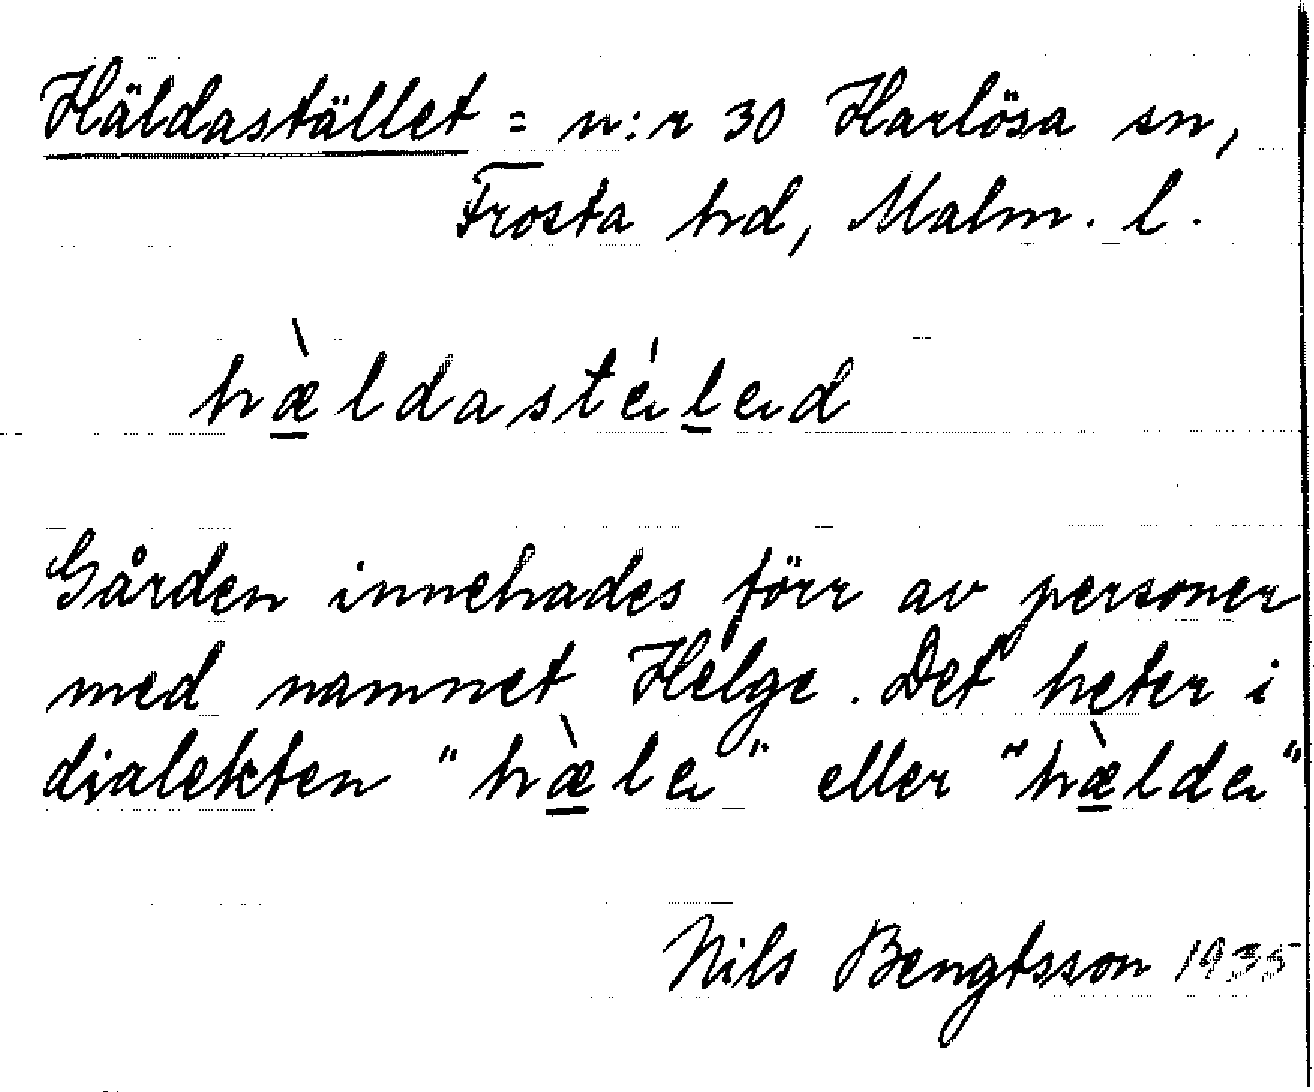 Häldastället = n:r 30 Harlösa sn,
Frosta hrd, Malm. l.
hæ̀ldastéled
Gården innehades förr av personer
med namnet Helge. Det heter i
dialekten "hæ̀le" eller "hæ̀lde"
Nils Bengtsson 1935